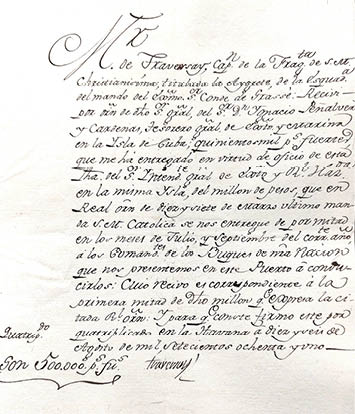 Mr.
de Traversay, Capn. de la Fragta. de S. M.
Christianisima, titubada la Aygrete, de la Esquada.
del mando del Exmo. Sor. Conde de Grasse: Reciví
por orn. de dho Sor. Gral, del Sor. Dn. Ignacio Peñalver
y Cardenas, Tesorero gral. de Exto. y Extarina
en la Isla de Cuba; quinientos mil ps. fuertes,
que me há entregado en virtud de oficio de esta
fha. del Sr. Intendte. gral de Exto. y Rl. Hazda.
en la misma Isla, del millon de pesos, que en
Real orn. de diez y siete de Marzo ultimo manda
S. M. Catolica se nos entregue de por mitad
en los meses de Julio, y Septiembre del corrte. año
à los Comandtes. de los Buques de nra Nacion
que nos presentemos en este Puerto à condu-
cirlos: Cuio recivo es correspondiente à la
primera mitad de dho millon qe. expera la ci-
tada Rl. orn. Y para qe. conste firmo este por
quatriplicado en la Havana à diez y seis de
Agosto de mil setecientos ochenta y uno.
Quatripdo.
Son 500,000 ps. fus. traversay